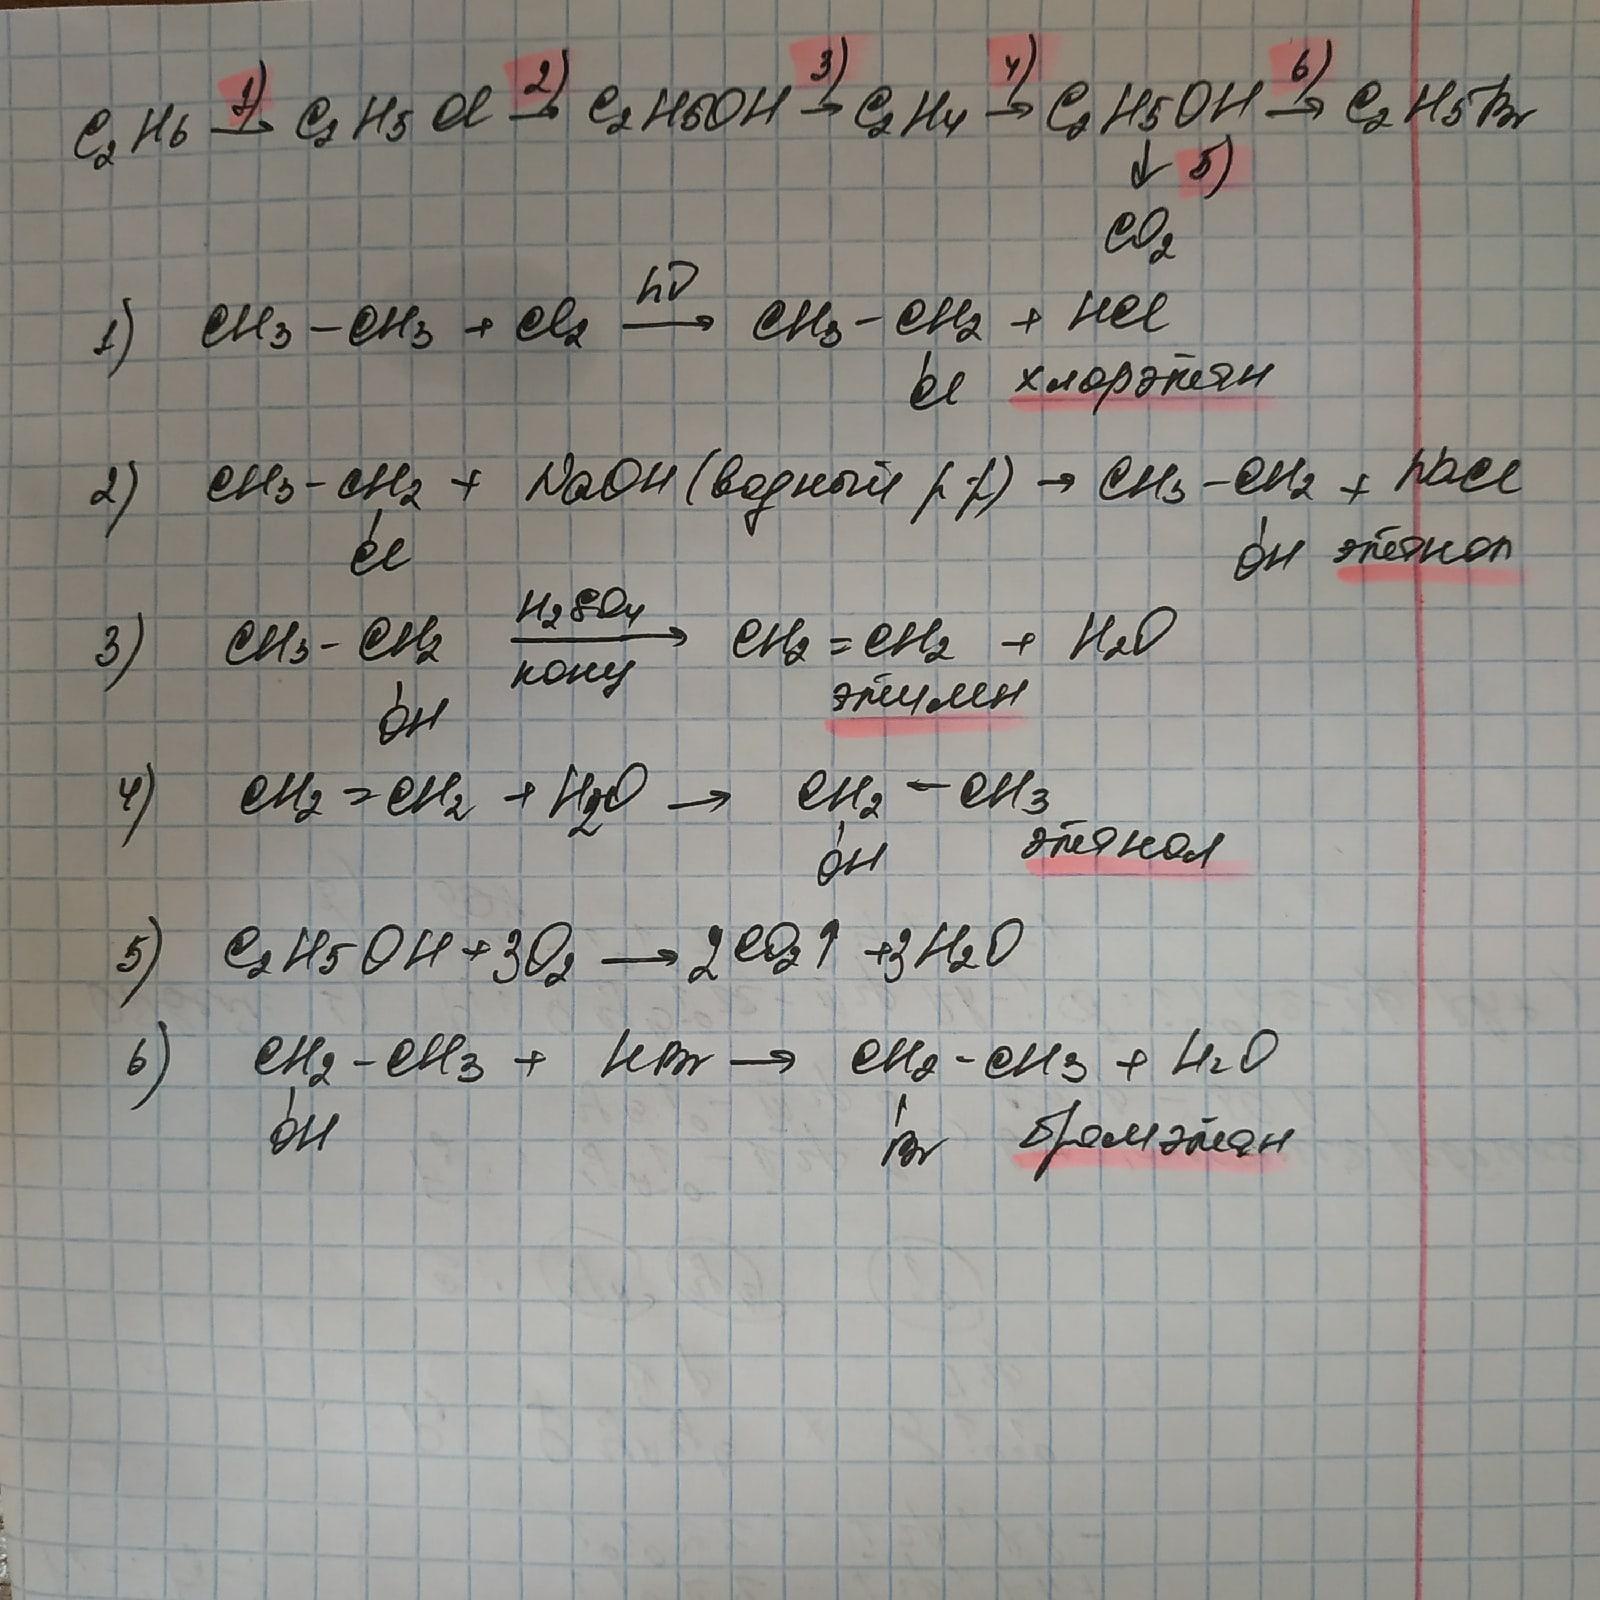 C₂H₆ 1)→ C₂H₅Cl 2)→ C₂H₅OH 3)→ C₂H₄ 4)→ C₂H₅OH 6)→ C₂H₅Br
↓ 5)
CO₂
1) CH₃-CH₃ + Cl₂ hν→ CH₃-CH₂ + HCl
Cl хлорэтан
2) CH₃-CH₂ + NaOH (водный р-р) → CH₃-CH₂ + NaCl
Cl OH этанол
3) CH₃-CH₂ H₂SO₄→ CH₂=CH₂ + H₂O
конц этилен
OH
4) CH₂=CH₂ + H₂O → CH₂-CH₃
OH этанол
5) C₂H₅OH + 3O₂ → 2CO₂↑ + 3H₂O
6) CH₂-CH₃ + HBr → CH₂-CH₃ + H₂O
OH Br бромэтан